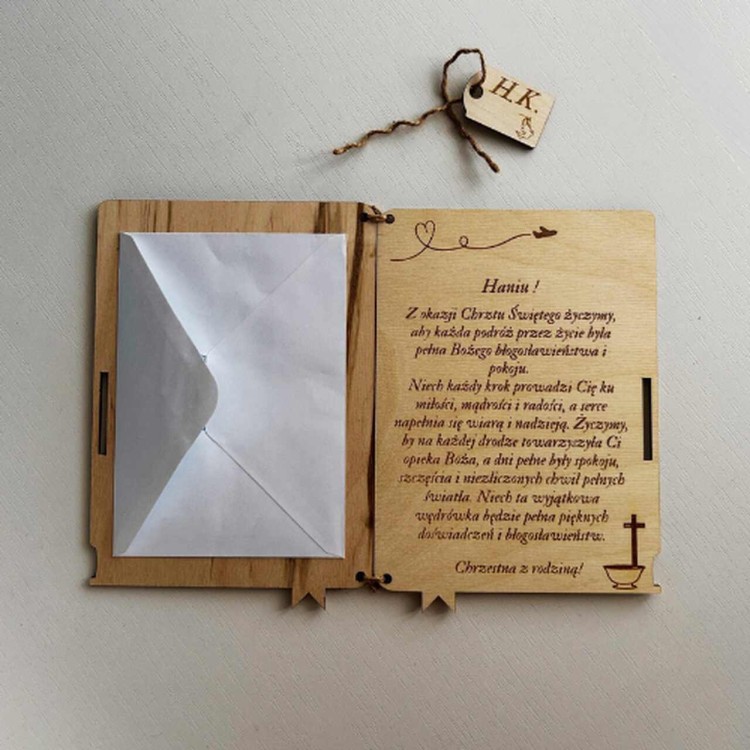 H.K.
Haniu !
Z okazji Chrztu Świętego życzymy,
aby każda podróż przez życie była
pełna Bożego błogosławieństwa i
pokoju.
Niech każdy krok prowadzi Cię ku
miłości, mądrości i radości, a serce
napełnia się wiarą i nadzieją. Życzymy,
by na każdej drodze towarzyszyła Ci
opieka Boża, a dni pełne były spokoju,
szczęścia i niezliczonych chwil pełnych
światła. Niech ta wyjątkowa
wędrówka będzie pełna pięknych
doświadczeń i błogosławieństw.
Chrzestna z rodziną!